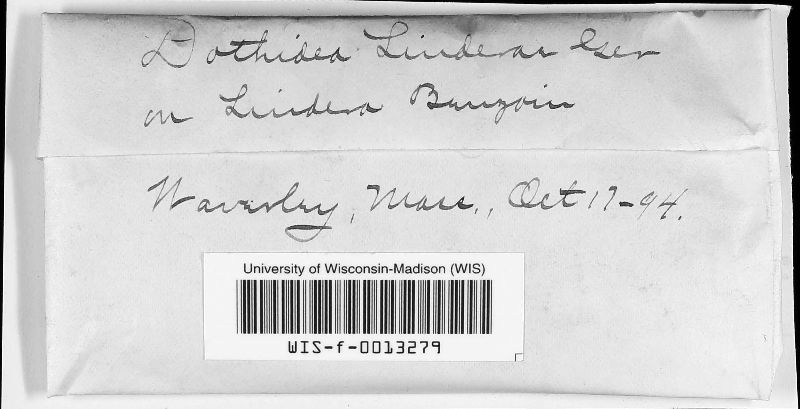 Dothidea Linderae Ger
on Lindera Benzoin
Waverley, Mass., Oct 17-94.
University of Wisconsin-Madison (WIS)
WIS-f-0013279